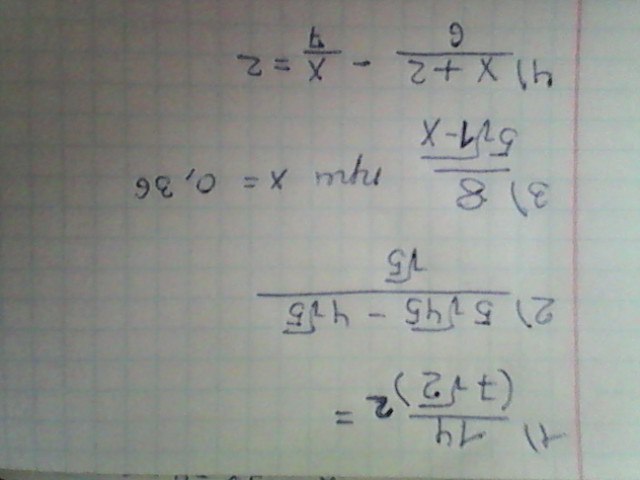 1) 14/(7√2)² =
2) (5√45 - 4√5)/√5
3) 8/(5√1-x) при x = 0,36
4) (x+2)/6 - x/4 = 2